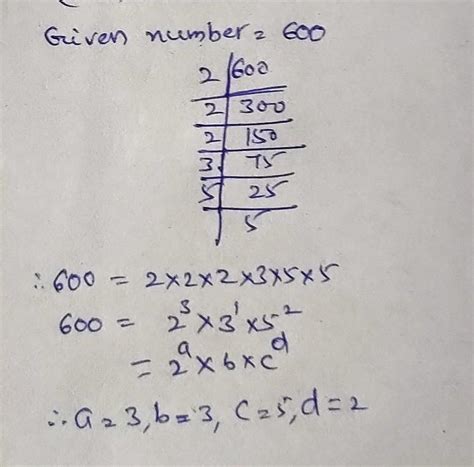 Given number = 600
2 | 600
2 | 300
2 | 150
3 | 75
5 | 25
| 5
∴ 600 = 2×2×2×3×5×5
600 = 2³ × 3¹ × 5²
= 2ᵃ × b × cᵈ
∴ a = 3, b = 3, c = 5, d = 2